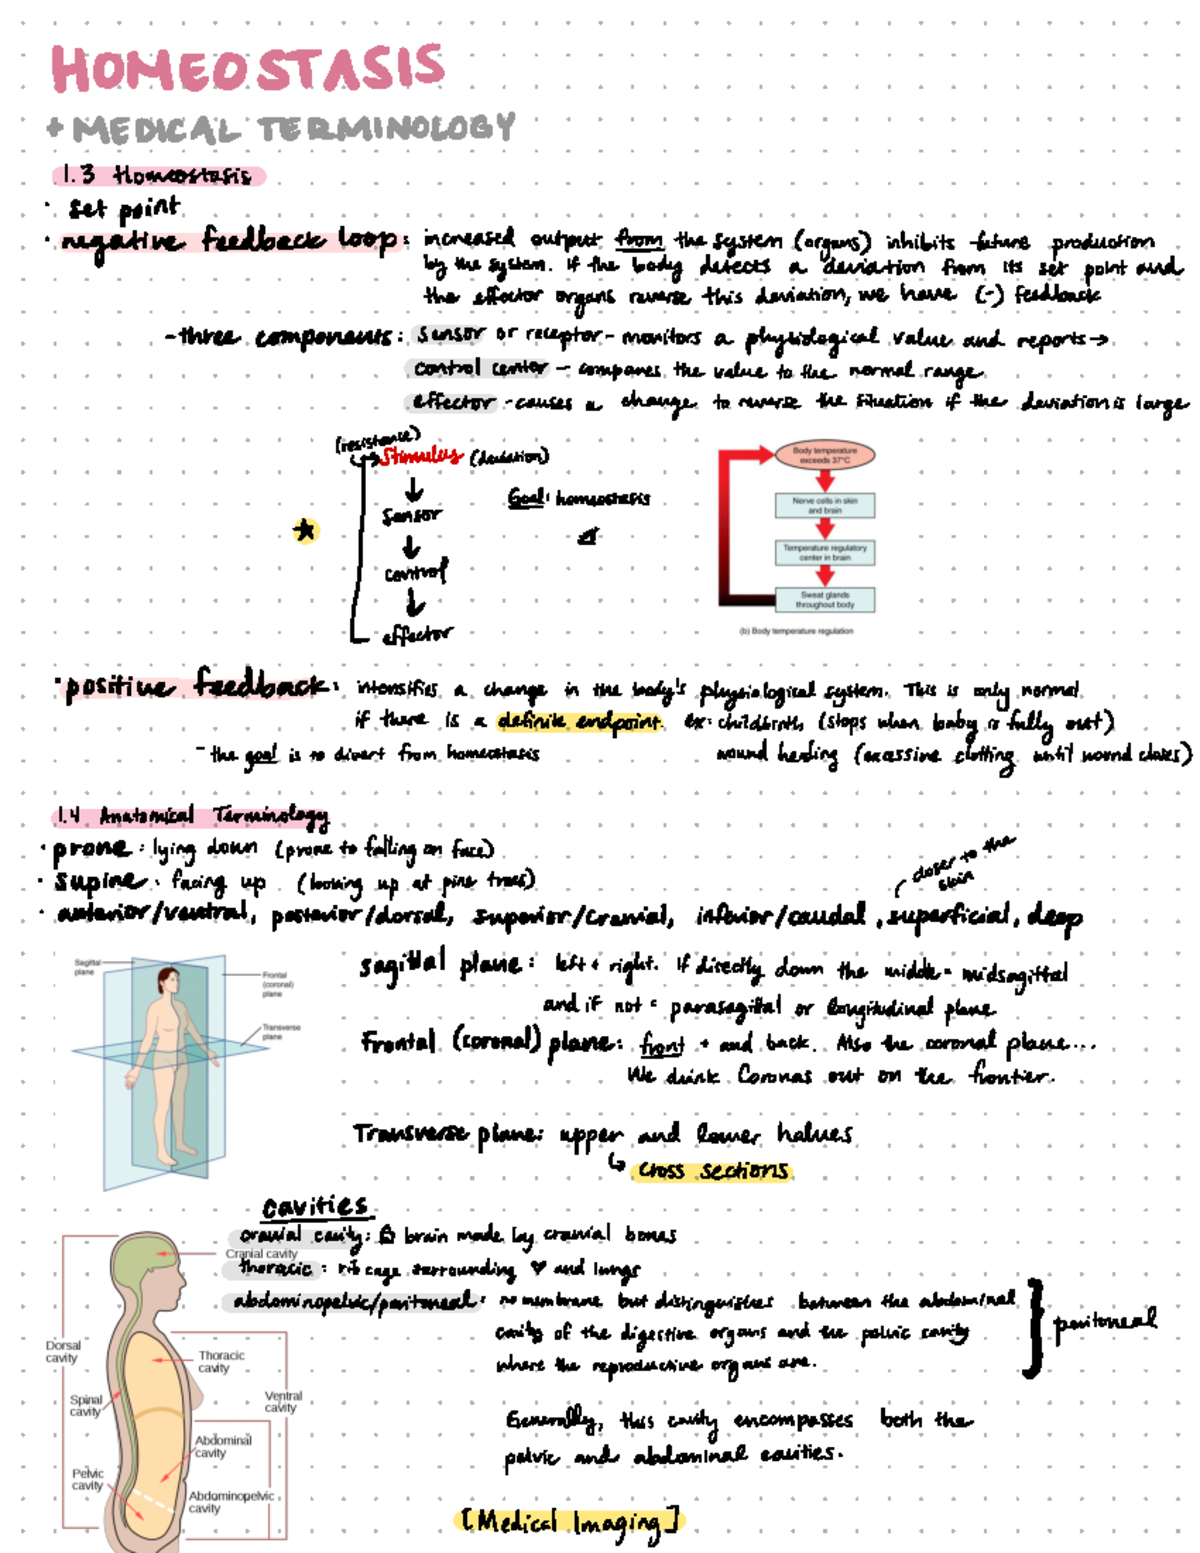 HOMEOSTASIS
+ MEDICAL TERMINOLOGY
1.3 Homeostasis
· set point
· negative feedback loop: increased output from the system (organs) inhibits future production
by the system. If the body detects a deviation from its set point and
the effector organs reverse this deviation, we have (-) feedback
- three components: sensor or receptor - monitors a physiological value and reports →
control center - compares the value to the normal range
effector - causes a change to reverse the situation if the deviation is large
(resistance)
Stimulus (deviation)
Goal: homeostasis
Sensor
control
effector
Body temperature
exceeds 37°C
Nerve cells in skin
and brain
Temperature regulatory
center in brain
Sweat glands
throughout body
(b) Body temperature regulation
· positive feedback: intensifies a change in the body's physiological system. This is only normal
if there is a definite endpoint. ex: childbirth (stops when baby is fully out)
- the goal is to divert from homeostasis
wound healing (excessive clotting until wound closes)
1.4 Anatomical Terminology
· prone: lying down (prone to falling on face)
· supine: facing up (looking up at pine trees)
closer to the
skin
· anterior/ventral, posterior/dorsal, superior/cranial, inferior/caudal, superficial, deep
Sagittal
plane
Frontal
(coronal)
plane
Transverse
plane
sagittal plane: left + right. If directly down the middle = midsagittal
and if not = parasagittal or longitudinal plane
Frontal (coronal) plane: front + and back. Also the coronal plane...
We drink Coronas out on the frontier.
Transverse plane: upper and lower halves
↳ cross sections
cavities
cranial cavity: brain made by cranial bones
thoracic: rib cage surrounding ♥ and lungs
abdominopelvic/peritoneal: no membrane but distinguishes between the abdominal
cavity of the digestive organs and the pelvic cavity
where the reproductive organs are.
peritoneal
Generally, this cavity encompasses both the
pelvic and abdominal cavities.
Cranial cavity
Dorsal
cavity
Thoracic
cavity
Spinal
cavity
Ventral
cavity
Abdominal
cavity
Pelvic
cavity
Abdominopelvic
cavity
[Medical Imaging]